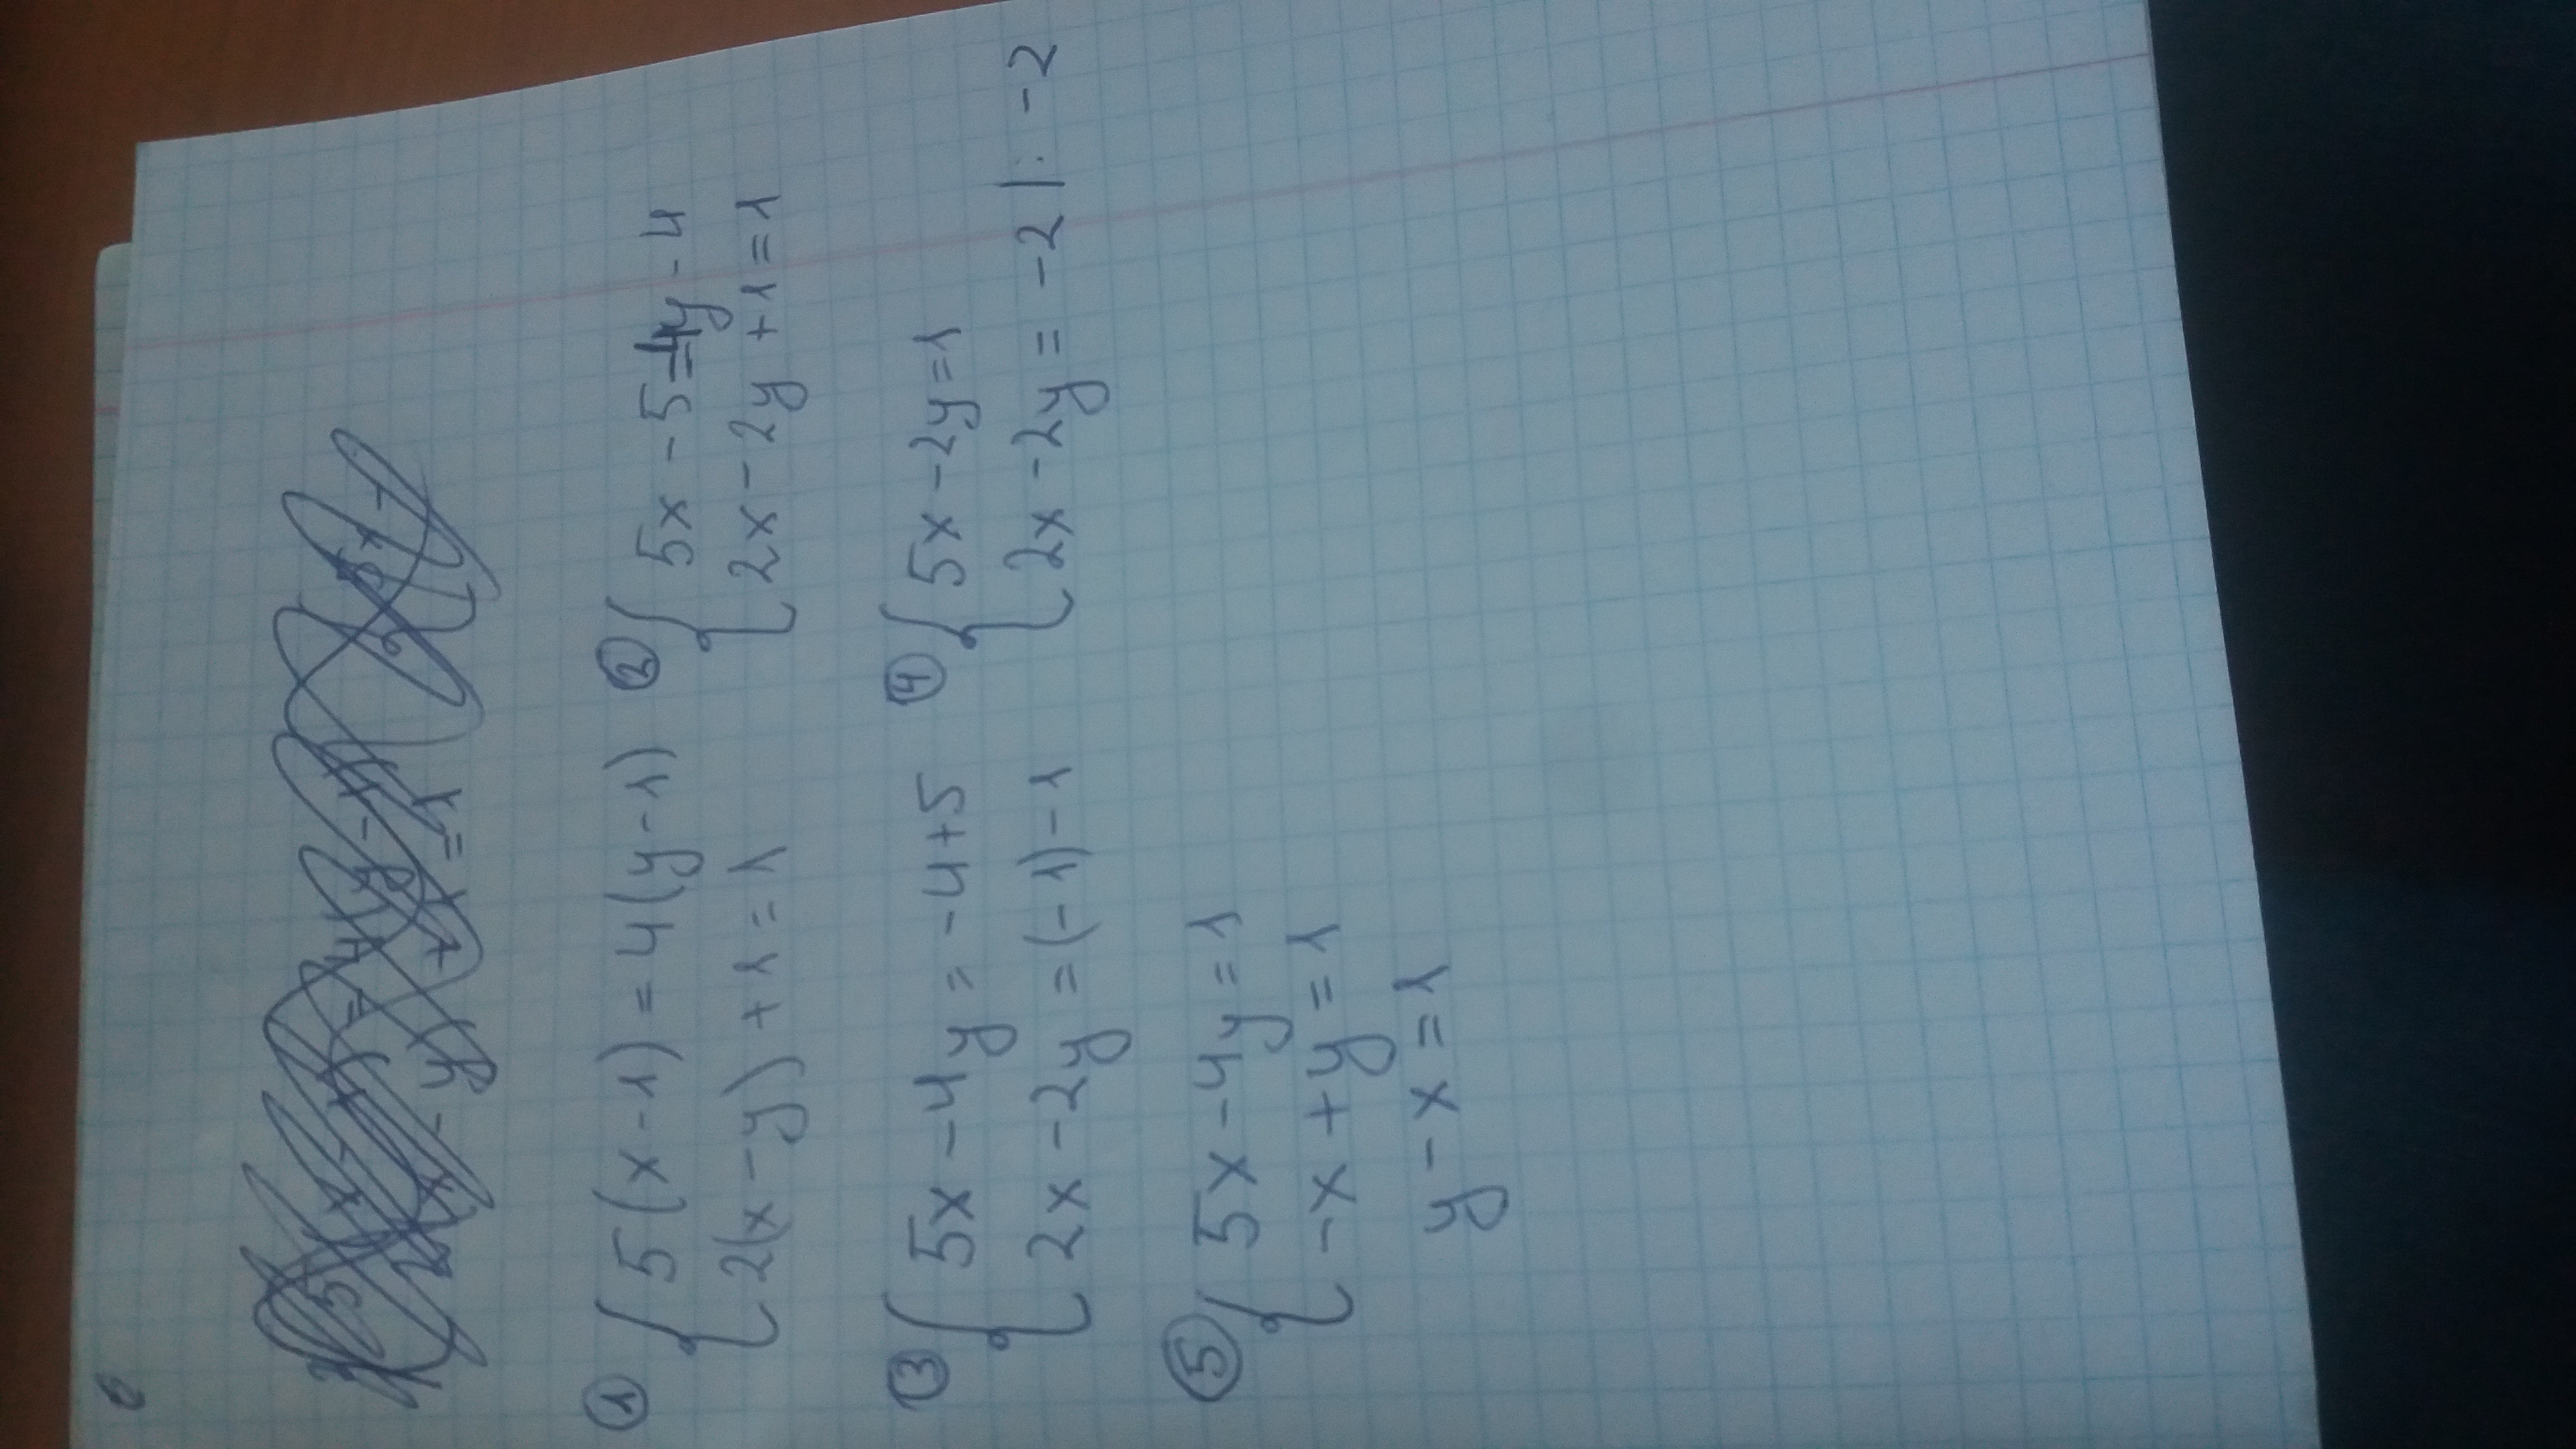 ① { 5(x-1) = 4(y-1)
2(x-y) + 1 = 1
② { 5x - 5 = 4y - 4
2x - 2y + 1 = 1
③ { 5x - 4y = -4+5
2x - 2y = (-1) - 1
④ { 5x - 2y = 1
2x - 2y = -2 |: -2
⑤ { 5x - 4y = 1
-x + y = 1
y - x = 1